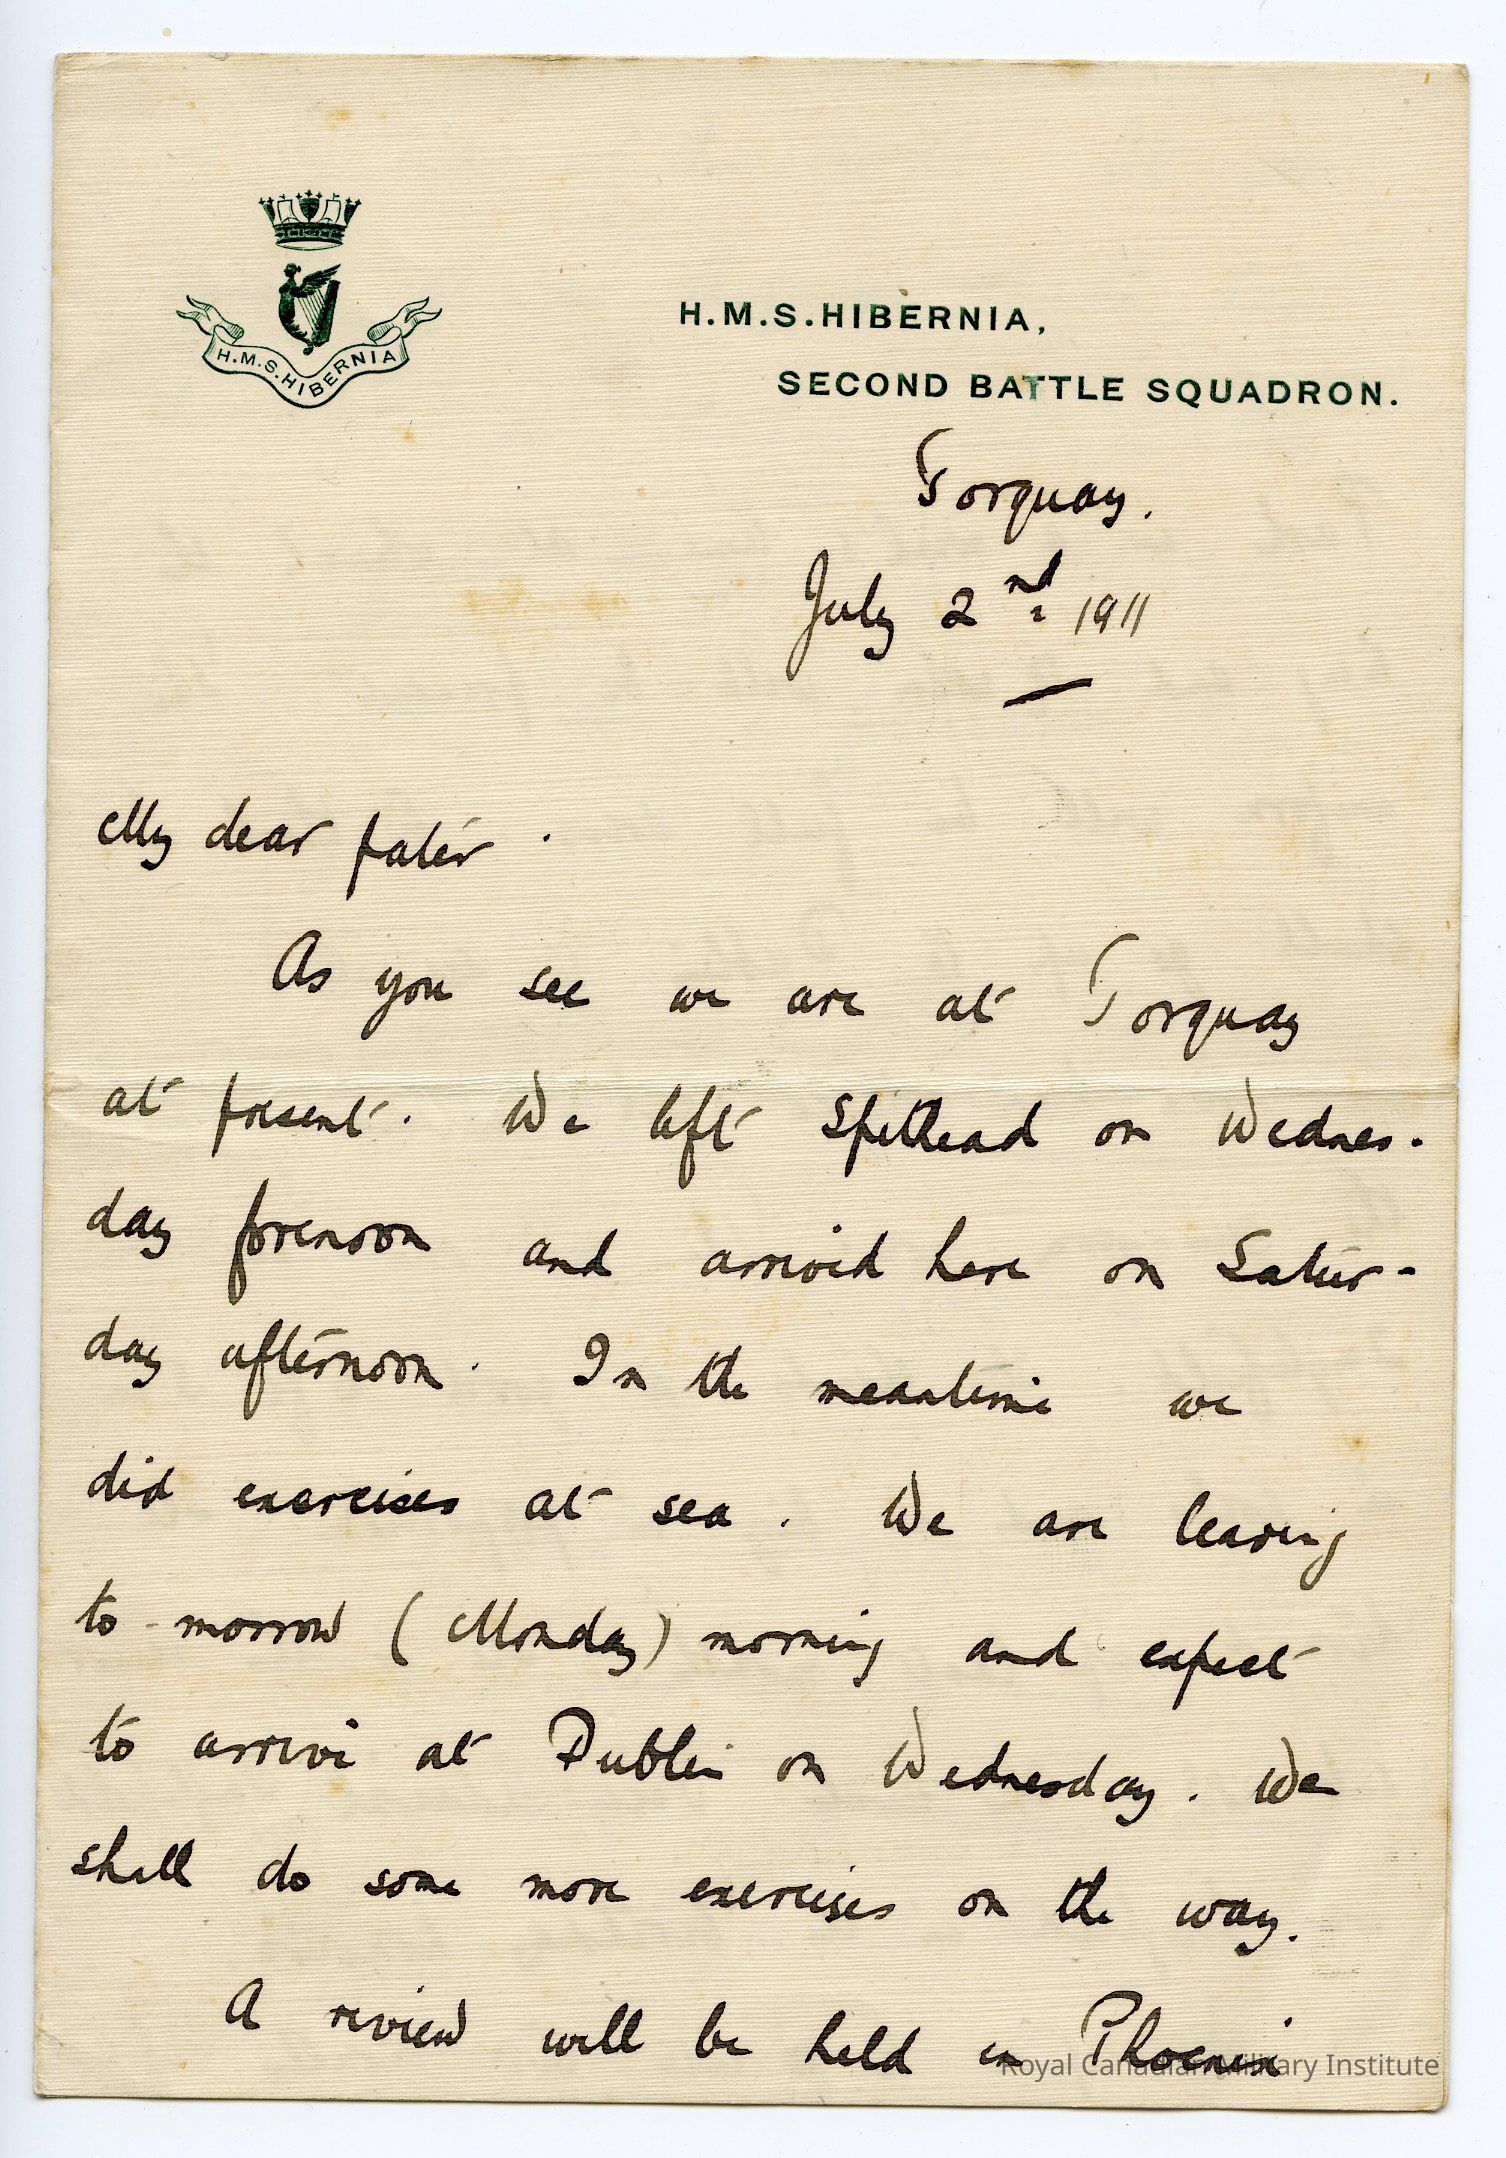 H.M.S. HIBERNIA
H.M.S. HIBERNIA,
SECOND BATTLE SQUADRON.
Torquay.
July 2nd 1911
My dear pater.
As you see we are at Torquay
at present. We left Spithead on Wednes-
day forenoon and arrived here on Satur-
day afternoon. In the meantime we
did exercises at sea. We are leaving
to-morrow (Monday) morning and expect
to arrive at Dublin on Wednesday. We
shall do some more exercises on the way.
A review will be held in Phoenix
Royal Canadian Military Institute